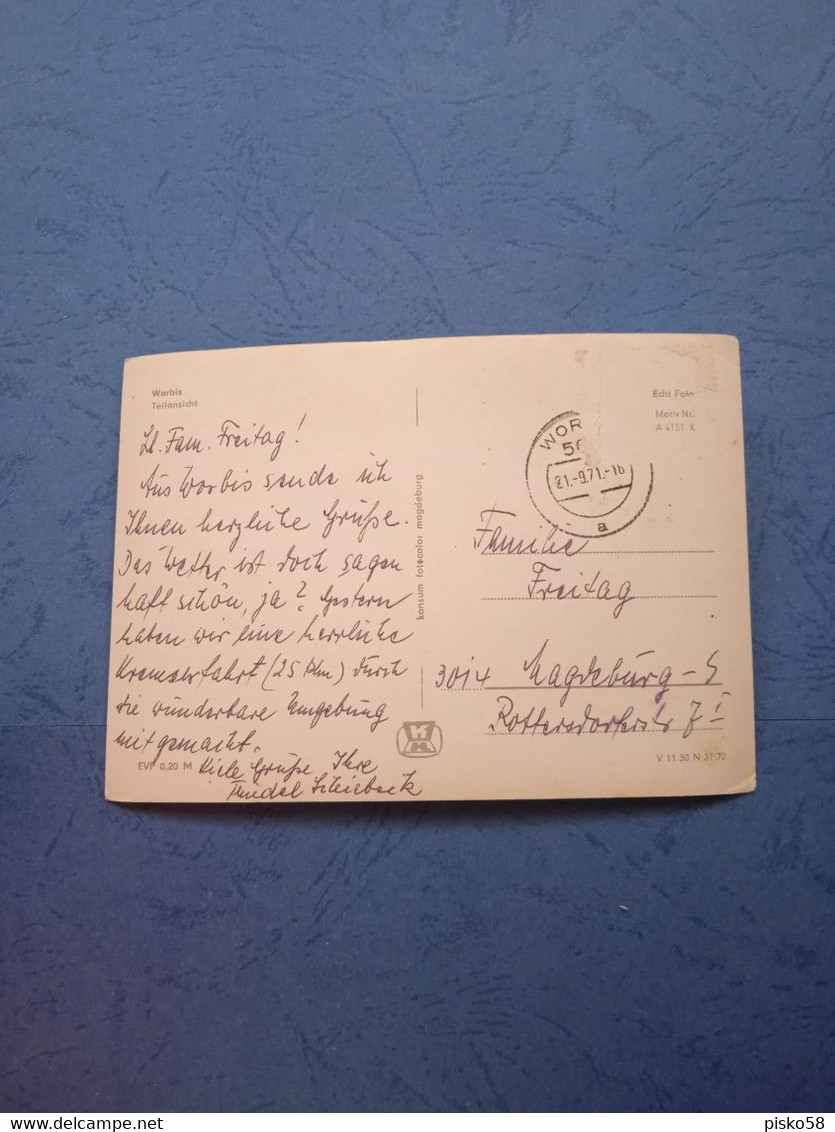 Worbis
Teilansicht
Lb. Fam. Freitag!
Aus Worbis sende ich
Ihnen herzliche Grüße.
Das Wetter ist doch sagen
haft schön, ja? Gestern
haben wir eine herrliche
Kremserfahrt (25 Km) durch
die wunderbare Umgebung
mitgemacht.
Viele Grüße, Ihre
Friedel
EVP 0,20 M
konsum fotocolor magdeburg
Echt Foto
Motiv Nr.
A 4151 K
WOR
56
21.-9.71.-16
a
Familie
Freitag
3014 Magdeburg-S
Rottersdorferstr 7
V 11 50 N 31/70
www.delcampe.net
pisko58